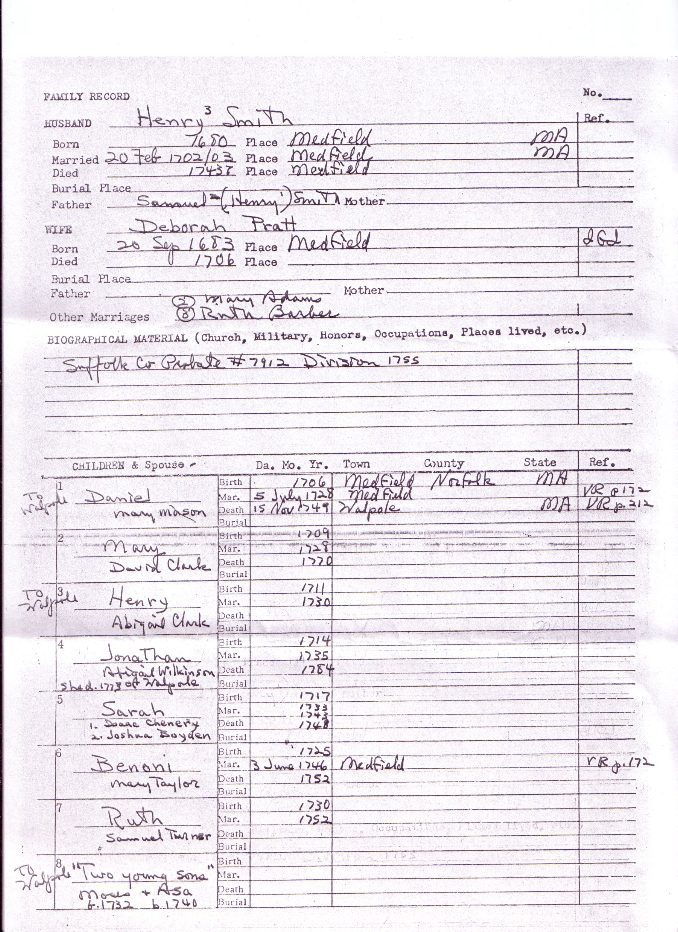 FAMILY RECORD No.
HUSBAND Henry³ Smith Ref.
Born 1680 Place Medfield MA
Married 20 Feb 1702/03 Place Medfield MA
Died 1743 Place Medfield
Burial Place
Father Samuel² (Henry¹) Smith Mother
WIFE Deborah Pratt
Born 20 Sep 1683 Place Medfield
Died 1706 Place
Burial Place
Father Mother
② Mary Adams
Other Marriages ③ Ruth Barber
BIOGRAPHICAL MATERIAL (Church, Military, Honors, Occupations, Places lived, etc.)
Suffolk Co Probate #7912 Division 1755
CHILDREN & Spouse Da. Mo. Yr. Town County State Ref.
1 Birth 1706 Medfield Norfolk MA
To Walpole Daniel Mar. 5 July 1728 Medfield VR p172
Mary Mason Death 15 Nov 1749 Walpole MA VR p.212
Burial
2 Birth 1709
Mary Mar. 1728
David Clark Death 1770
Burial
To Walpole 3 Birth 1711
Henry Mar. 1730
Abigail Clark Death
Burial
4 Birth 1714
Jonathan Mar. 1735
Abigail Wilkinson Death 1784
of Walpole Burial
5 Birth 1717
Sarah Mar. 1733
1743
1. Isaac Chenery Death 1748
2. Joshua Boyden Burial
6 Birth 1725
Benoni Mar. 3 June 1746 Medfield VR p.172
Mary Taylor Death 1752
Burial
7 Birth 1730
Ruth Mar. 1752
Samuel Turner Death
Burial
To Walpole 8 Birth
"Two young sons" Mar.
Moses + Asa Death
b.1732 b.1740 Burial